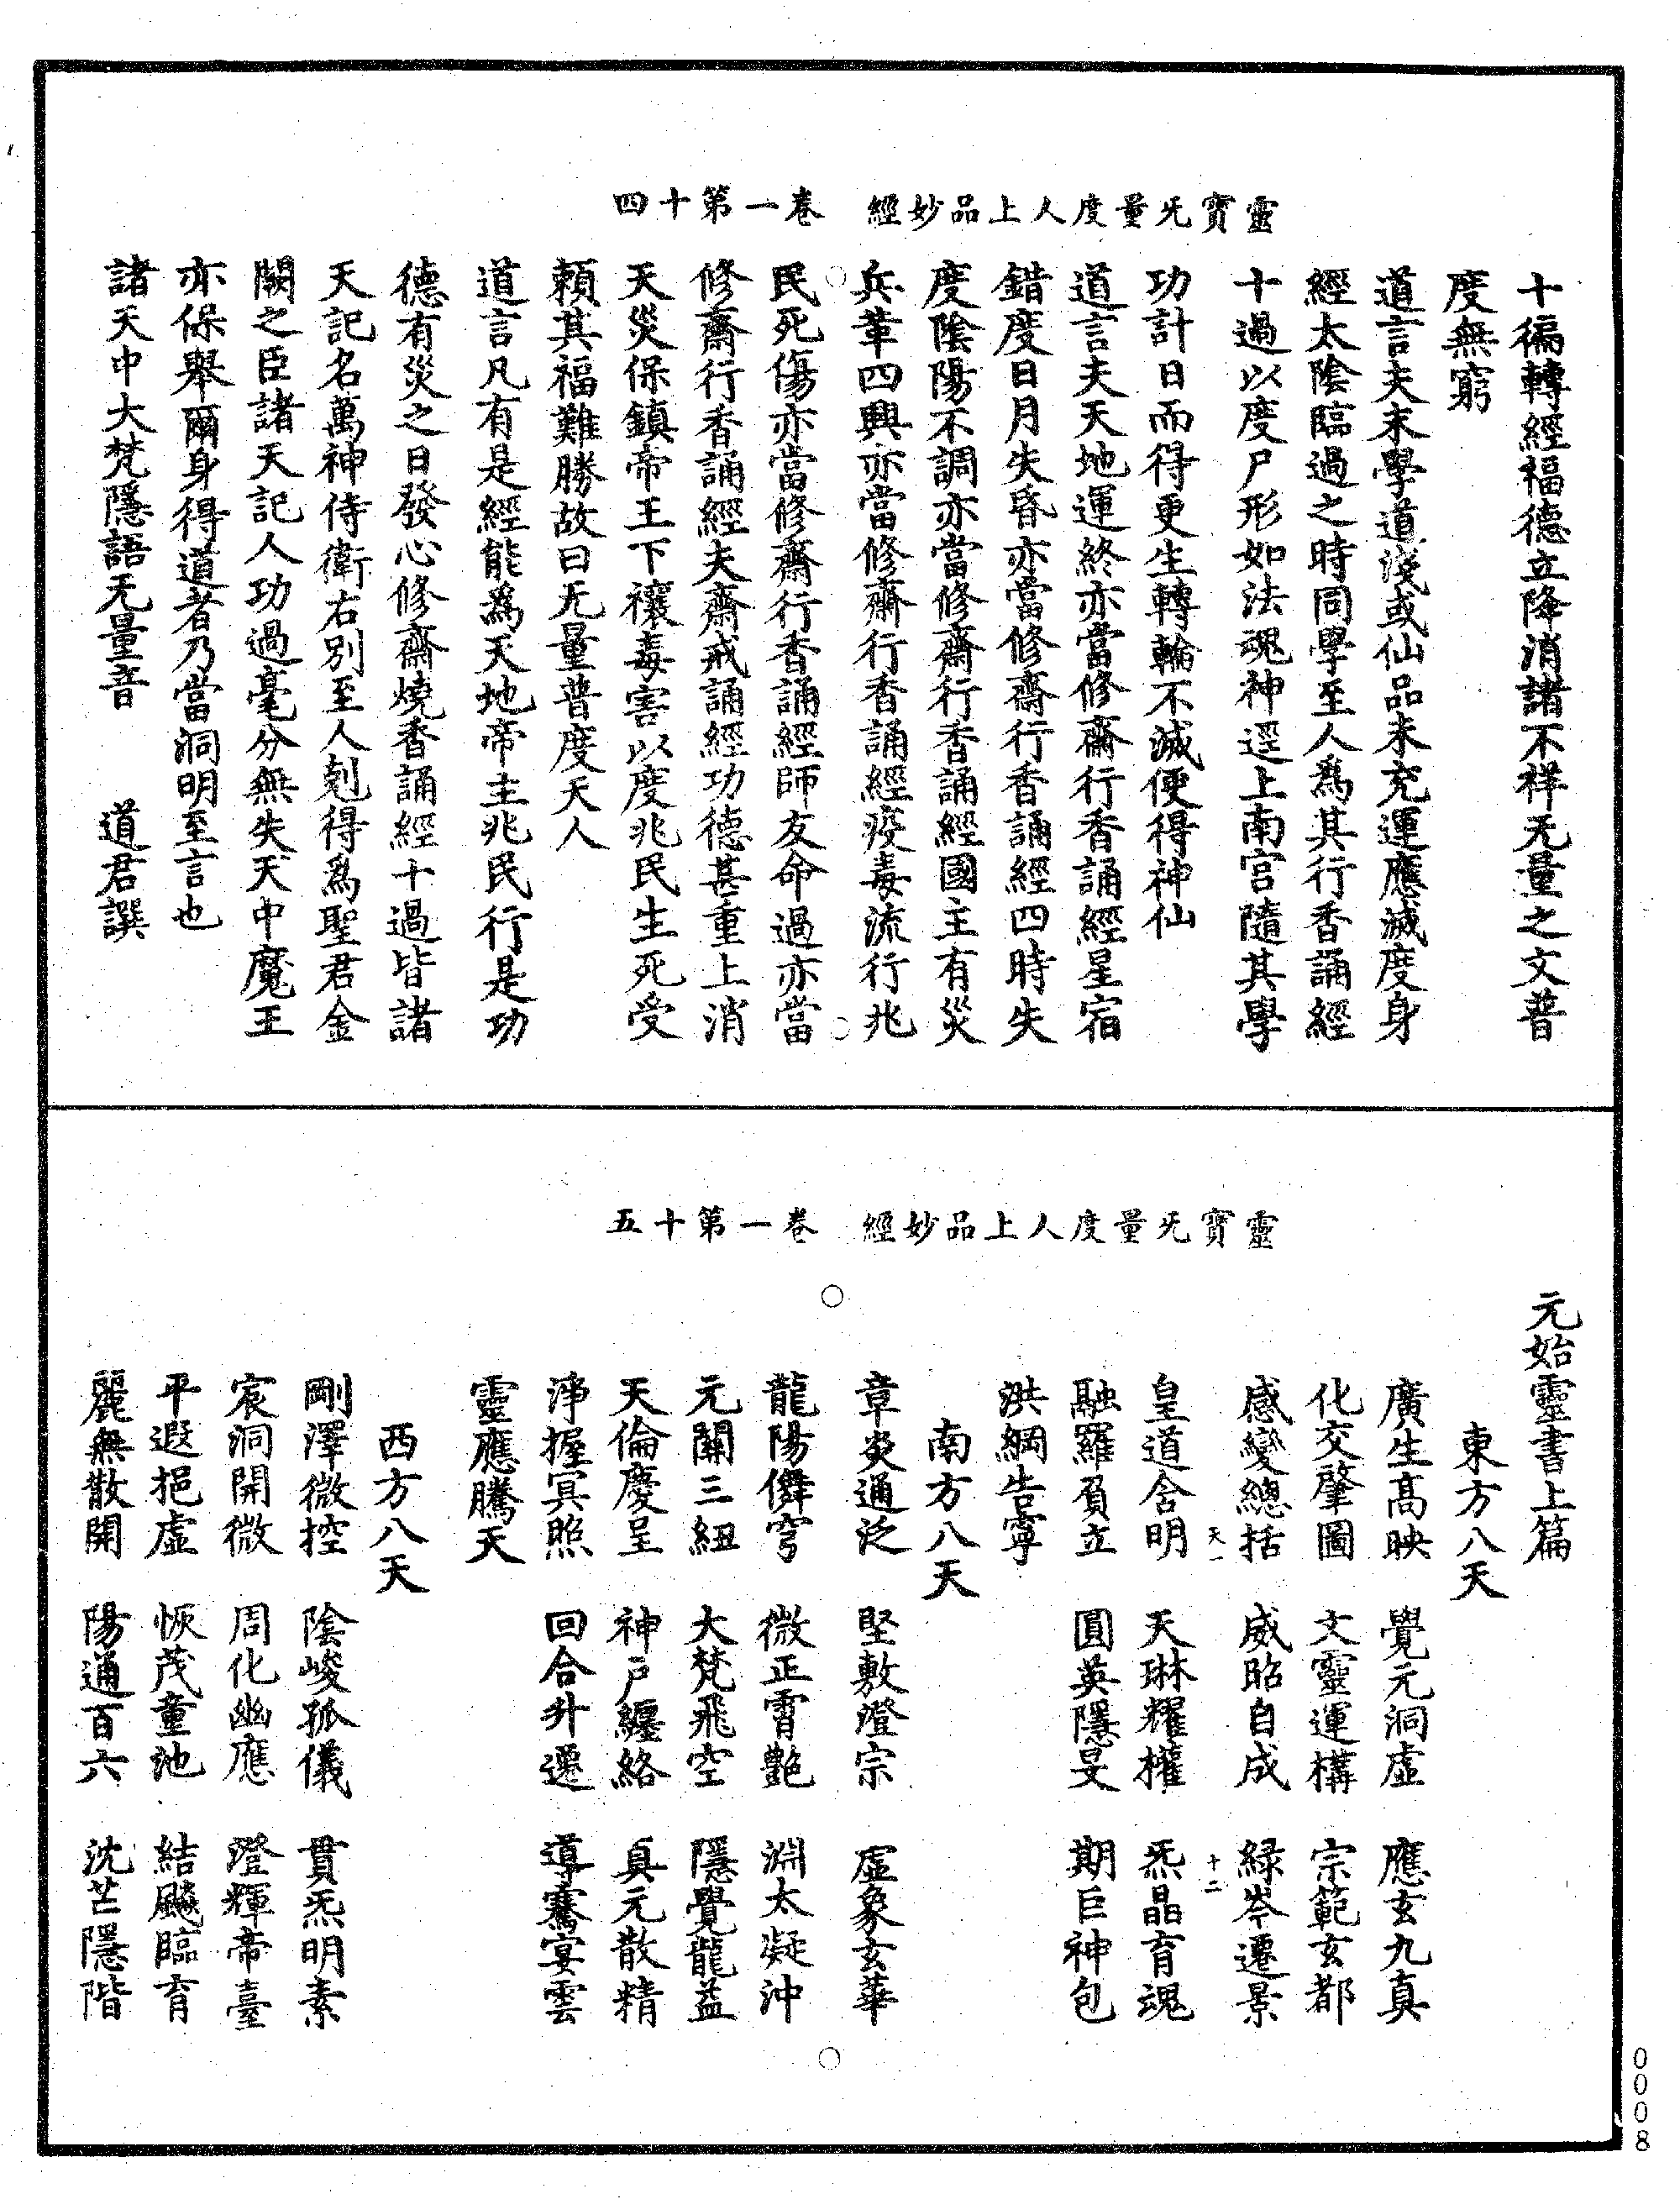 靈寶无量度人上品妙經　卷一第十四
十徧轉經福德立降消諸不祥无量之文普
度無窮
道言夫末學道淺或仙品未充運應滅度身
經太陰臨過之時同學至人爲其行香誦經
十過以度尸形如法魂神逕上南宮隨其學
功計日而得更生轉輪不滅便得神仙
道言夫天地運終亦當修齋行香誦經星宿
錯度日月失昏亦當修齋行香誦經四時失
度陰陽不調亦當修齋行香誦經國主有災
兵革四興亦當修齋行香誦經疫毒流行兆
民死傷亦當修齋行香誦經師友命過亦當
修齋行香誦經夫齋戒誦經功德甚重上消
天災保鎮帝王下禳毒害以度兆民生死受
賴其福難勝故曰无量普度天人
道言凡有是經能爲天地帝主兆民行是功
德有災之日發心修齋燒香誦經十過皆諸
天記名萬神侍衛右別至人剋得爲聖君金
闕之臣諸天記人功過毫分無失天中魔王
亦保舉爾身得道者乃當洞明至言也
諸天中大梵隱語无量音　道君譔
靈寶无量度人上品妙經　卷一第十五
元始靈書上篇
東方八天
廣生高映　覺元洞虛　應玄九真
化交肇圖　文靈運構　宗範玄都
感變總括　威昭自成　綠岑遷景
天一　十二
皇道含明　天琳耀權　炁晶育魂
融羅負立　圓英隱旻　期巨神包
洪綱告寧
南方八天
章炎通泛　堅敷澄宗　虛象玄華
龍陽儛穹　微正霄艷　淵太凝沖
元關三紐　大梵飛空　隱覺龍益
天倫慶呈　神戶纏絡　真元散精
淨握冥照　回合升遷　導騫宴雲
靈應騰天
西方八天
剛澤微控　陰峻孤儀　貫炁明素
宸洞開微　周化幽應　澄輝帝臺
平遐挹虛　恢茂童池　結飈臨育
麗無散開　陽通百六　沈芒隱階
0008